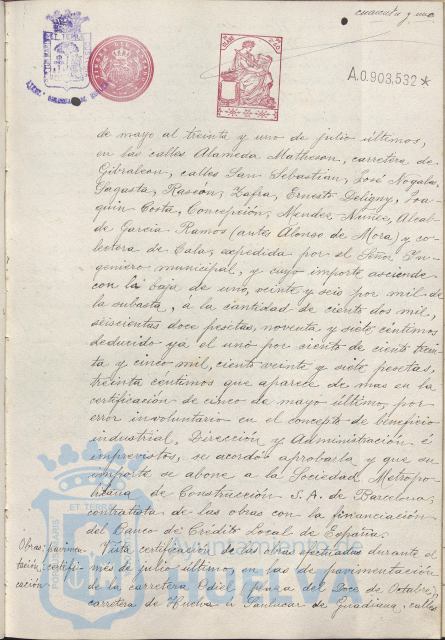 cuarenta y uno
A.0.903,532*
de mayo al treinta y uno de julio últimos,
en las calles Alameda Matheson, carretera de
Gibraleon, calles San Sebastián, José Nogales,
Sagasta, Rascón, Zafra, Ernesto Deligny, Joa-
quin Costa, Concepción, Méndez Núñez, Alcalde
García Ramos (antes Alonso de Mora) y co-
lectera de Cala, expedida por el Señor In-
geniero municipal, y cuyo importe asciende
con la baja de uno, veinte y seis por mil de
la subasta, á la cantidad de ciento dos mil,
seiscientas doce pesetas, noventa y siete céntimos,
deducido ya el uno por ciento de ciento trein-
ta y cinco mil, ciento veinte y siete pesetas,
treinta céntimos que aparece de mas en la
certificación de cinco de mayo último, por
error involuntario en el concepto de beneficio
industrial, Dirección y Administración é
imprevistos, se acordó aprobarla y que su
importe se abone a la Sociedad Metropo-
litana de Construcción S.A. de Barcelona,
contratista de las obras con la financiación
del Banco de Crédito Local de España.
Obras: pavimen-
tación: certifi-
cación
Vista certificación de las obras efectuadas durante el
mes de julio último, en las de pavimentación
de la carretera Odiel, plaza del Doce de Octubre,
carretera de Huelva a Sanlucar de Guadiana, calles
ET TERRÆ
PORTUS MARIS
Ayuntamiento de
HUELVA